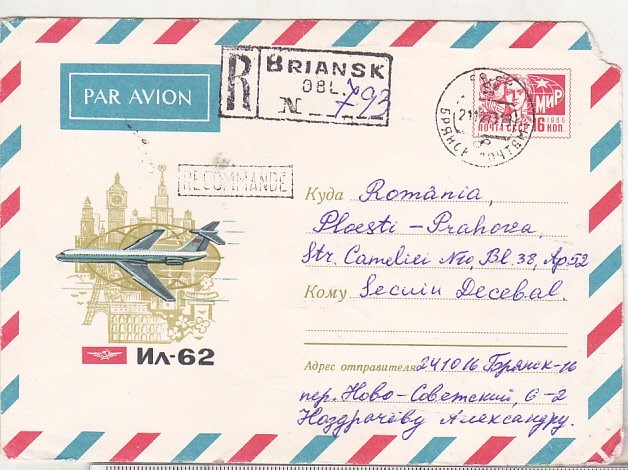 PAR AVION
R
BRIANSK
OBL.
N 793
RECOMMANDÉ
МИР
1966
ПОЧТА СССР
16 КОП.
БРЯНСК ПОЧТАМТ
Куда România,
Ploesti - Prahova,
Str. Cameliei N10, Bl. 38, Ap 52
Кому Secuiu Decebal.
Ил-62
Адрес отправителя 241016 Брянск-16
пер. Ново-Советский, 6-2
Ноздрачёву Александру.